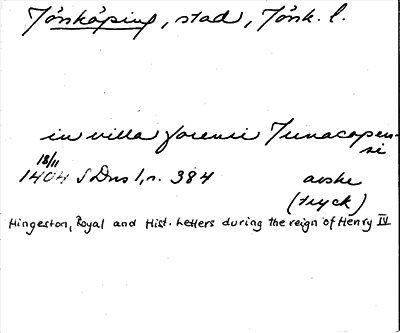 Jönköping, stad, Jönk. l.
in villa forensi Junacopen-
si
18/11
1404 SDns 1, s. 384 avskr
(tryck)
Hingeston, Royal and Hist. Letters during the reign of Henry IV